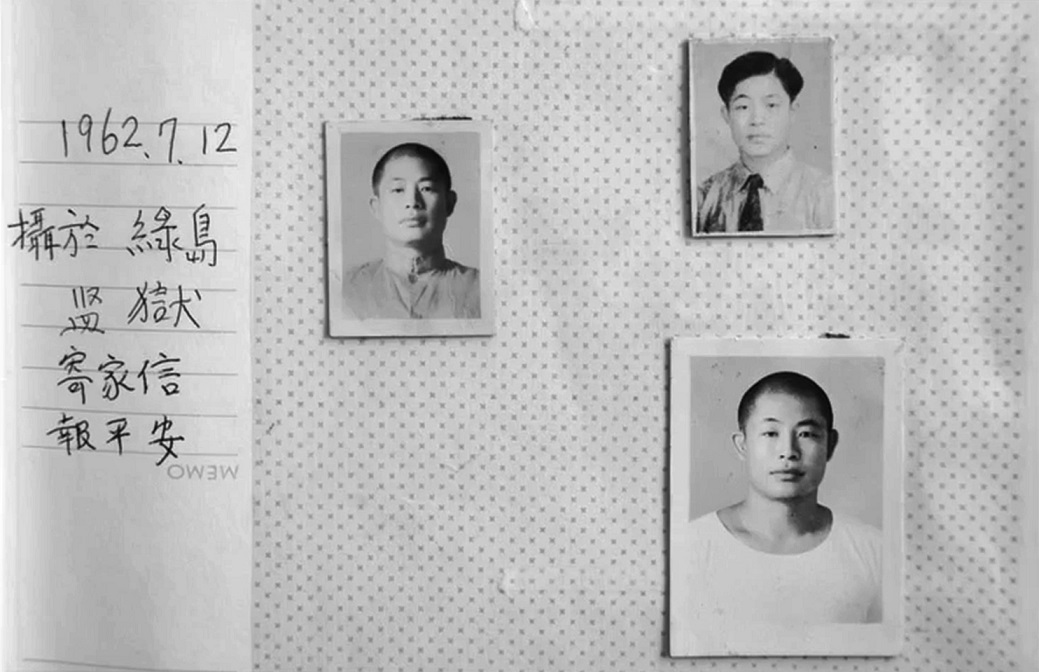 1962.7.12
攝於 綠島
监 獄
寄家信
報平安
MEMO